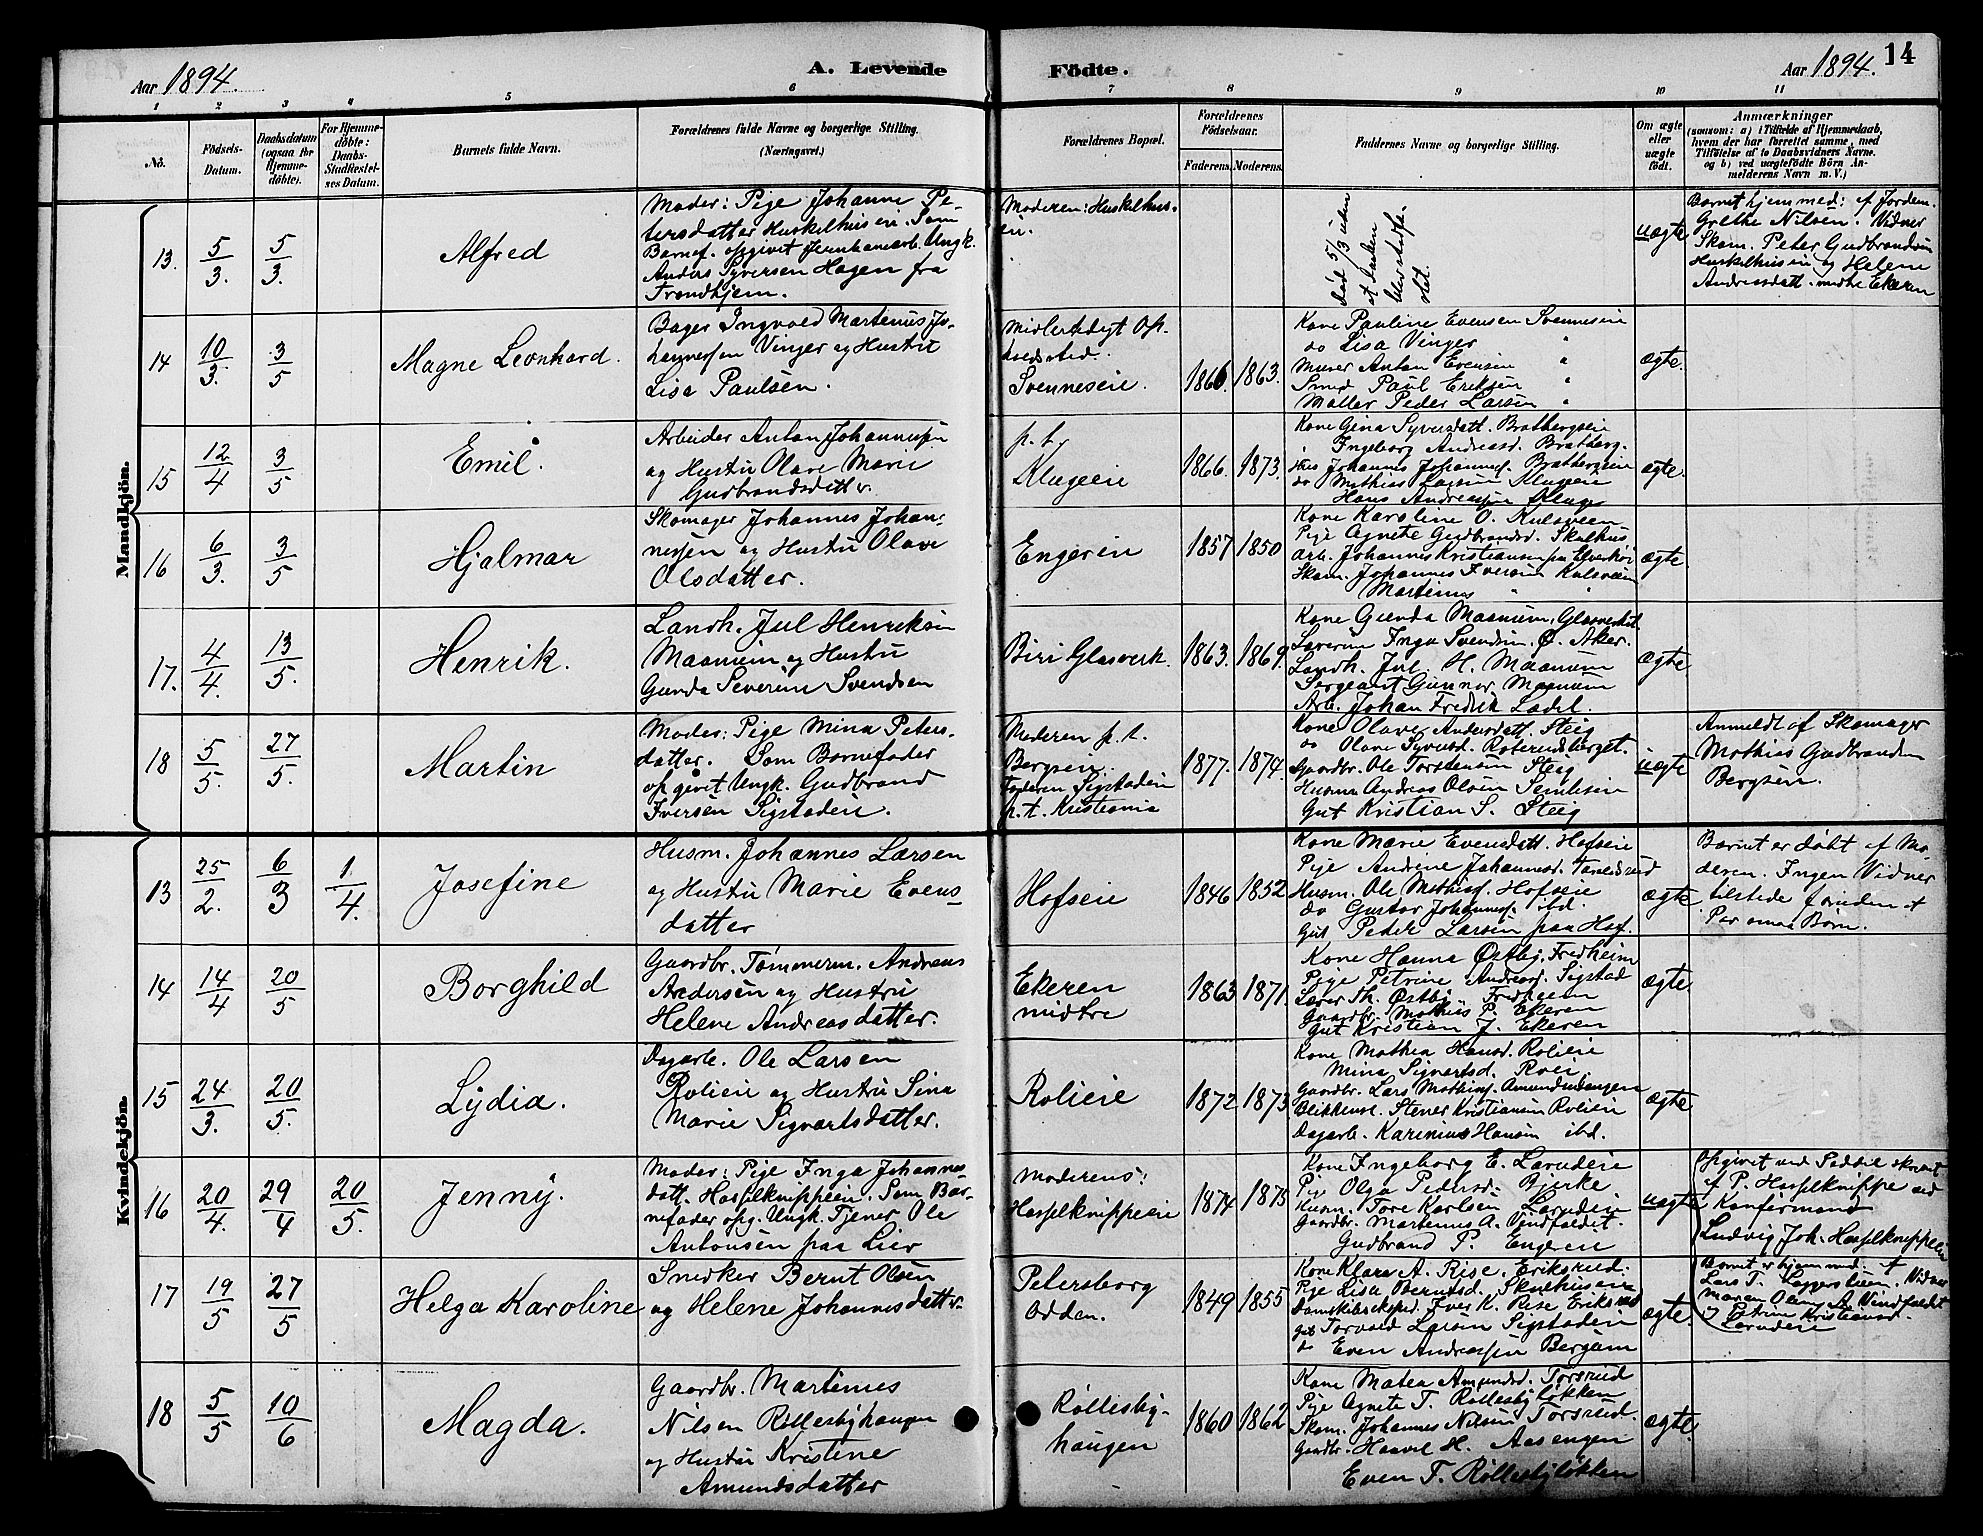 Aar 1894.
A. Levende
Födte.
Aar 1894.
14
1 2 3 4 5 6 7 8 9 10 11
No.
Födsels-
Datum.
Daabsdatum
(ogsaa for
Hjemme-
döbte).
For Hjemme-
döbte:
Daabs-
Stadfæstel-
ses Datum.
Barnets fulde Navn.
Forældrenes fulde Navne og borgerlige Stilling.
(Næringsvei.)
Forældrenes Bopæl.
Forældrenes
Födselsaar.
Faderens.
Moderens.
Faddernes Navne og borgerlige Stilling.
Om ægte
eller
uægte
födt.
Anmærkninger
(saasom: a) i Tilfælde af Hjemmedaab,
hvem der har forrettet samme, med
Tilföielse af to Daabsvidners Navne.
og b) ved uægtefödte Börn An-
melderens Navn m. V.)
Mandkjön.
13. 5/3. 5/3.
Alfred
Moder: Pige Johanne Pe-
tersdatter Huskelhuseie. Som
Barnef. opgivet Jernbanearb. Ungk.
Anders Syversen Hagen fra
Trondhjem.
Moderen: Huskelhus-
en.
død 5/3 uden
at daaden
blev stadfæ-
stet.
uægte
Barnet hjemmed: af Jordem.
Grethe Nilsen. Vidner
Skom. Peter Gudbrandsen
Huskelhuseie og Helene
Andreasdatt. midtre Ekeren
14 10/3. 3/5
Magne Leonhard.
Bager Ingvald Martenus Jo-
hannessen Vinger og Hustru
Lisa Paulsen.
Midlertidigt Op-
holdssted.
Svenneseie.
1866. 1863.
Kone Pauline Evensen Svenneseie
do Lisa Vinger "
Murer Anton Evensen "
Smed Paul Eriksen "
Møller Peder Larsen "
ægte.
15 12/4 3/5
Emil.
Arbeider Anton Johannessen
og Hustru Olave Marie
Gudbrandsdatter.
p.t.
Klugeeie
1866. 1873.
Kone Gina Syversdatt. Bratbergseie
Ingeborg Andreasd. Bratberg.
Johannes Johannesf. Bratbergseie
do Mathias Larsen Klugeeie
Hans Andreassen Kluge
ægte.
16 6/3 3/5
Hjalmar
Skomager Johannes Johan-
nessen og Hustru Olave
Olsdatter.
Engereie
1857 1850
Kone Karoline O. Kulsveen
Pige Agnete Gudbrandsd. Skulhus
Arb. Johannes Kristiansen paa
Skom. Johannes Iversen Kulsveen
Martenus " "
ægte.
17. 4/4. 13/5.
Henrik.
Landh. Jul Henriksen
Maanum og Hustru
Gunda Severine Svendsen
Biri Glasverk.
1863. 1869.
Kone Gunda Maanum, Glasverket
Laverine Inga Svendsen Ø. Aker.
Landh. Jul. H. Maanum
Sergeant Gunnar Maanum
Arb. Johan Fredrik Ladel.
ægte
18 5/5. 27/5.
Martin
Moder: Pige Mina Peters-
datter. Som Barnefader
opgivet Ungk. Gudbrand
Iversen Sigstadeie.
Moderen p.t.
Bergseie.
Faderen Sigstadeie
p.t. Kristiania
1877. 1874
Kone Olave Andersdatt. Steig
do Olave Syversd. Roterudsberget.
Gaardbr. Ole Torstensen Steig
Husm. Andreas Olsen Sembseie
Gut Kristian S. Steig
uægte
Anmeldt af Skomager
Mathias Gudbrandsen
Bergseie.
Kvindekjön.
13 25/2. 6/3 1/4.
Josefine
Husm. Johannes Larsen
og Hustru Marie Evens-
datter
Hofseie
1846 1852
Kone Marie Evensdatt. Hofseie
Pige Andrine Johannesd. Taralsrud
Husm. Ole Mathisf. Hofseie
do Gustav Johannesf. ibd.
Gut Peter Larsen paa Hof.
ægte
Barnet er døbt af Mo-
deren. Ingen Vidner
tilstede foruden et
Par smaa Børn.
14 14/4 20/5
Borghild
Gaardbr. Tømmerm. Andreas
Andersen og Hustru
Helene Andreasdatter.
Ekeren
midtre
1863 1871
Kone Hanna Østby, Fredheim
Pige Petrine Andreasd. Sigstad
Lærer Th. Østby. Fredheim
Gaardbr. Mathias P. Ekeren
Gut Kristian J. Ekeren
ægte.
15 24/3. 20/5.
Lydia.
Dagarb. Ole Larsen
Rolieie og Hustru Sina
Marie Sigvartsdatter.
Rolieie
1872 1873
Kone Mathea Hansd. Rolieie
Mina Sigvartsd. Roei
Gaardbr. Lars Mathiasf. Amundsengen
Blikkensl. Stener Kristiansen Rolieie
Dagarb. Karinius Hansen ibd.
ægte
16 20/4. 29/4 20/5.
Jenny.
Moder: Pige Inga Johannes-
datt. Haspelknippeeie. Som Bar-
nefader opg. Ungk. Tjener Ole
Antonsen paa Lier
Moderens:
Haspelknippeeie
1874 1875
Kone Ingeborg E. Larudeie
Pige Olga Pedersd. Bjerke
Husm. Tore Karlsen Larudeie
Gaardbr. Martenus A. Vindfaldet.
Gudbrand P. Engereie
uægte
Opgivet ved Seddel skrevet
af P. Haspelknippe ved
Konfirmand
Ludvig Joh. Haspelknippeeie
17 19/5 27/5
Helga Karoline
Snedker Bernt Olsen
og Helene Johannesdatter
Petersborg
Odden.
1849 1855
Kone Klara A. Rise. Eriksrud.
Pige Lisa Berntsd. Skulhuseie
Damskibseksped. Iver K. Rise Eriksrud
Gut Torvald Larsen Sigstadeie
do Even Andreassen Bergseie
ægte.
Barnet er hjemmed. af
Lars T. Vidner
Maren Olava A. Vindfaldet
og Petrine Kristiansd.
Larudeie
18 5/5 10/6
Magda.
Gaardbr. Martinus
Nilsen Røllesbyhaugen
og Hustru Kristine
Amundsdatter
Røllesby-
haugen
1860 1862
Kone Matea Amundsd. Torsrud
Pige Agnete T. Røllesbyløkken
Skom. Johannes Nilsen Torsrud.
Gaardbr. Haavel H. Aasengen
Even T. Røllesbyløkken
ægte.